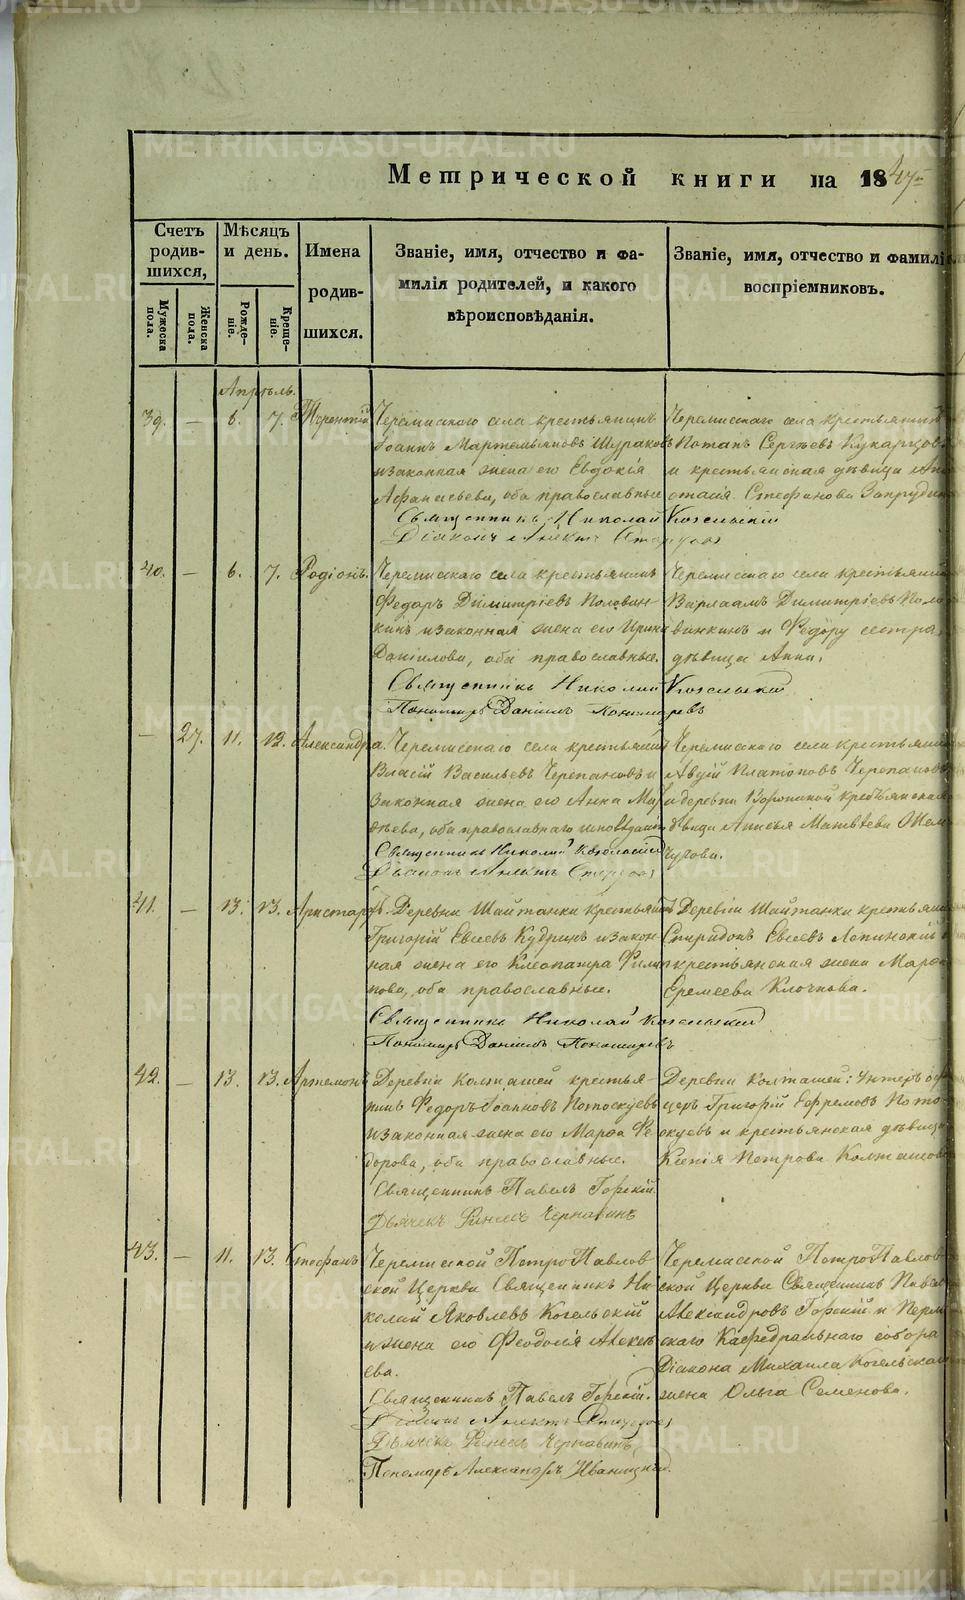 Метрической книги на 1847
Счетъ родив-шихся,
Мѣсяцъ и день.
Имена родив-шихся.
Званіе, имя, отчество и фа-
милія родителей, и какого
вѣроисповѣданія.
Званіе, имя, отчество и фамилі
воспріемниковъ.
Мужеска пола.
Женска пола.
Рожде-ніе.
Креще-ніе.
Апрѣль.
39. — 6. 7. Терентій
Черемисскаго села крестьянинъ
Іоаннъ Мартемьяновъ Шураковъ
и законная жена его Евдокія
Афанасьева, оба православные
Священникъ Николай Когельскій
Діаконъ
Черемисскаго села крестьянинъ
Потапъ Сергѣевъ Кукарцовъ
и крестьянская дѣвица Ана
стасія Стефанова Запрудин
40. — 6. 7. Родіонъ.
Черемисскаго села крестьянинъ
Федоръ Димитріевъ Половин-
кинъ и законная жена его Ирина
Даніилова, оба православные.
Священникъ Николай Когельскій
Пономарь Даніилъ Пономаревъ
Черемисскаго села крестьянин
Варлаамъ Димитріевъ Поло
винкинъ и Федору сестра,
дѣвица Анна.
— 27. 11. 12. Александра.
Черемисскаго села крестьянин
Власій Васильевъ Черепановъ и
законная жена его Анна Мат
ѣева, оба православнаго исповѣданія
Священникъ Николай Когельскій
Черемисскаго села крестьянин
Авдій Платоновъ Черепановъ
и деревни Ворониной крестьянская
дѣвица Анисья Матвѣева
чурова.
41. — 13. 13. Аристархъ.
Деревни Шайтанки крестьянинъ
Григорій Евсеевъ Кудринъ и закон-
ная жена его Клеопатра Фили
пова, оба православные.
Священникъ Николай Когельскій
Пономарь Даніилъ Пономаревъ
Деревни Шайтанки крестьянин
Спиридонъ Евсеевъ Лепинскій и
крестьянская жена Марѳа
Еремеева Клочкова.
42. — 13. 13. Артемонъ
Деревни Колташей крестья-
нинъ Федоръ Іоанновъ Потоскуевъ
и законная жена его Марѳа Фе
дорова, оба православные.
Священникъ Павелъ Горскій.
Дьячекъ Чернавинъ
Деревни Колташей: Унтеръ оф
церъ Григорій Ефремовъ Пото
скуевъ и крестьянская дѣвица
Ксенія Петрова Колташов
43. — 11. 13. Стефанъ
Черемисской ПетроПавлов-
ской Церкви Священникъ Ни
колай Яковлевъ Когельскій
и жена его Феодосія Алексѣ
ева.
Священникъ Павелъ Горскій.
Дьячекъ Чернавинъ
Пономарь Александръ Иваницкій.
Черемисской ПетроПавлов
ской Церкви Священникъ Павелъ
Александровъ Горскій и Перм
скаго Кафедральнаго собора
Діакона Михаила Когельскаго
жена Ольга Семенова.
METRIKI.GASO-URAL.RU